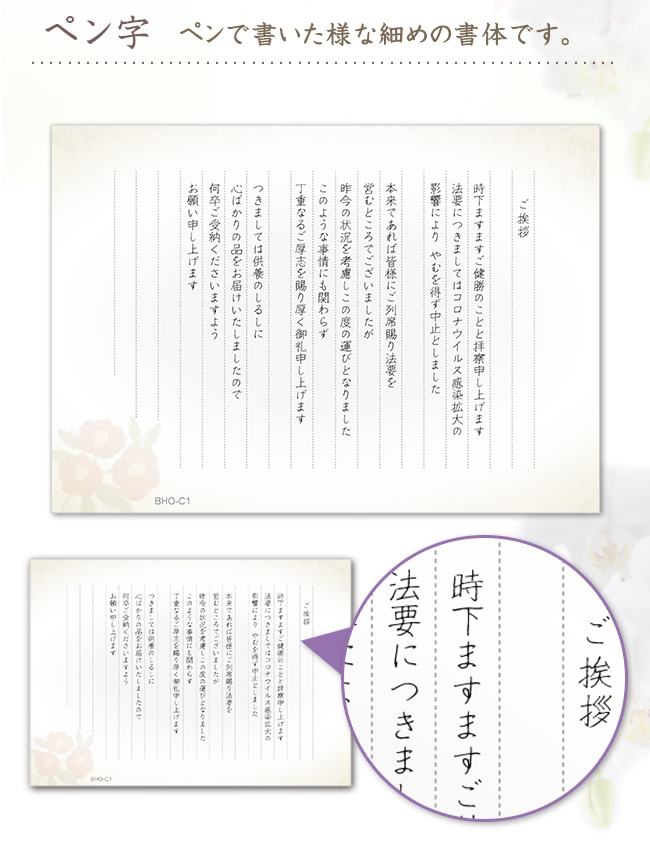 ペン字 ペンで書いた様な細めの書体です。
ご挨拶
時下ますますご健勝のことと拝察申し上げます
法要につきましてはコロナウイルス感染拡大の
影響により やむを得ず中止としました
本来であれば皆様にご列席賜り法要を
営むところでございましたが
昨今の状況を考慮しこの度の運びとなりました
このような事情にも関わらず
丁重なるご厚志を賜り厚く御礼申し上げます
つきましては供養のしるしに
心ばかりの品をお届けいたしましたので
何卒ご受納くださいますよう
お願い申し上げます
BHO-C1
ご挨拶
時下ますますご健勝のことと拝察申し上げます
法要につきましてはコロナウイルス感染拡大の
影響により やむを得ず中止としました
本来であれば皆様にご列席賜り法要を
営むところでございましたが
昨今の状況を考慮しこの度の運びとなりました
このような事情にも関わらず
丁重なるご厚志を賜り厚く御礼申し上げます
つきましては供養のしるしに
心ばかりの品をお届けいたしましたので
何卒ご受納くださいますよう
お願い申し上げます
BHO-C1
ご挨拶
時下ますますご
法要につきまし